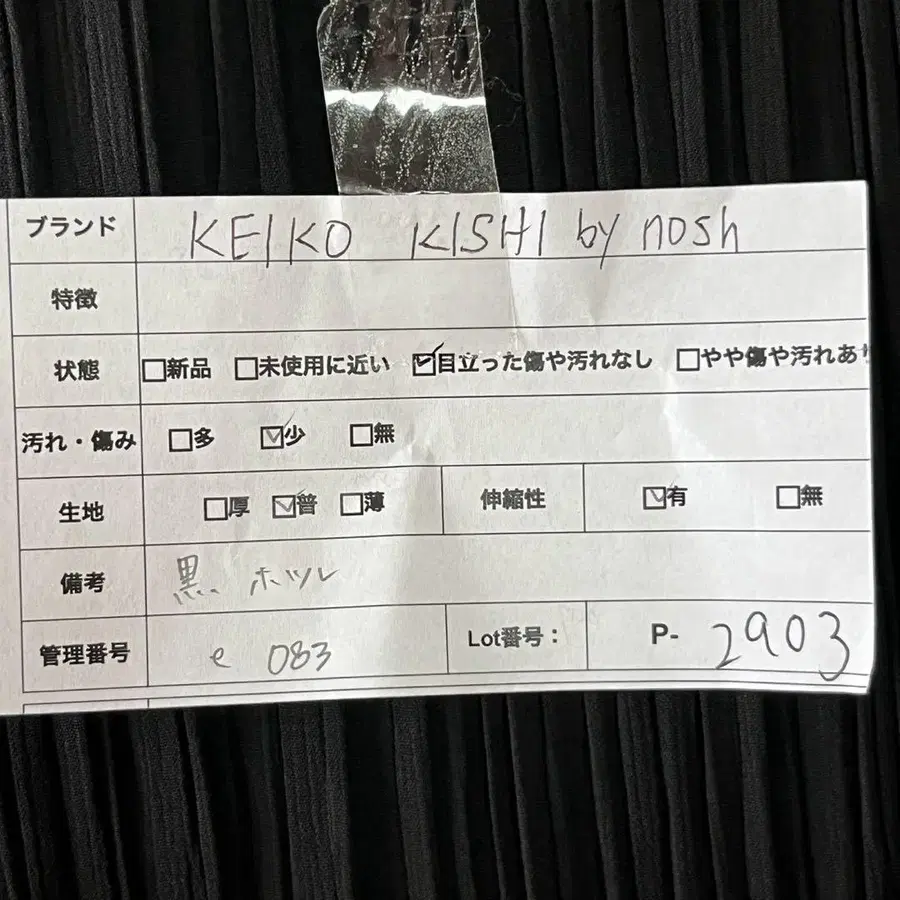 ブランド KEIKO KISHI by nosh
特徴
状態 □新品 □未使用に近い ☑目立った傷や汚れなし □やや傷や汚れあ
汚れ・傷み □多 ☑少 □無
生地 □厚 ☑普 □薄 伸縮性 ☑有 □無
備考 黒、ホツレ
管理番号 e 083 Lot番号： P- 2903